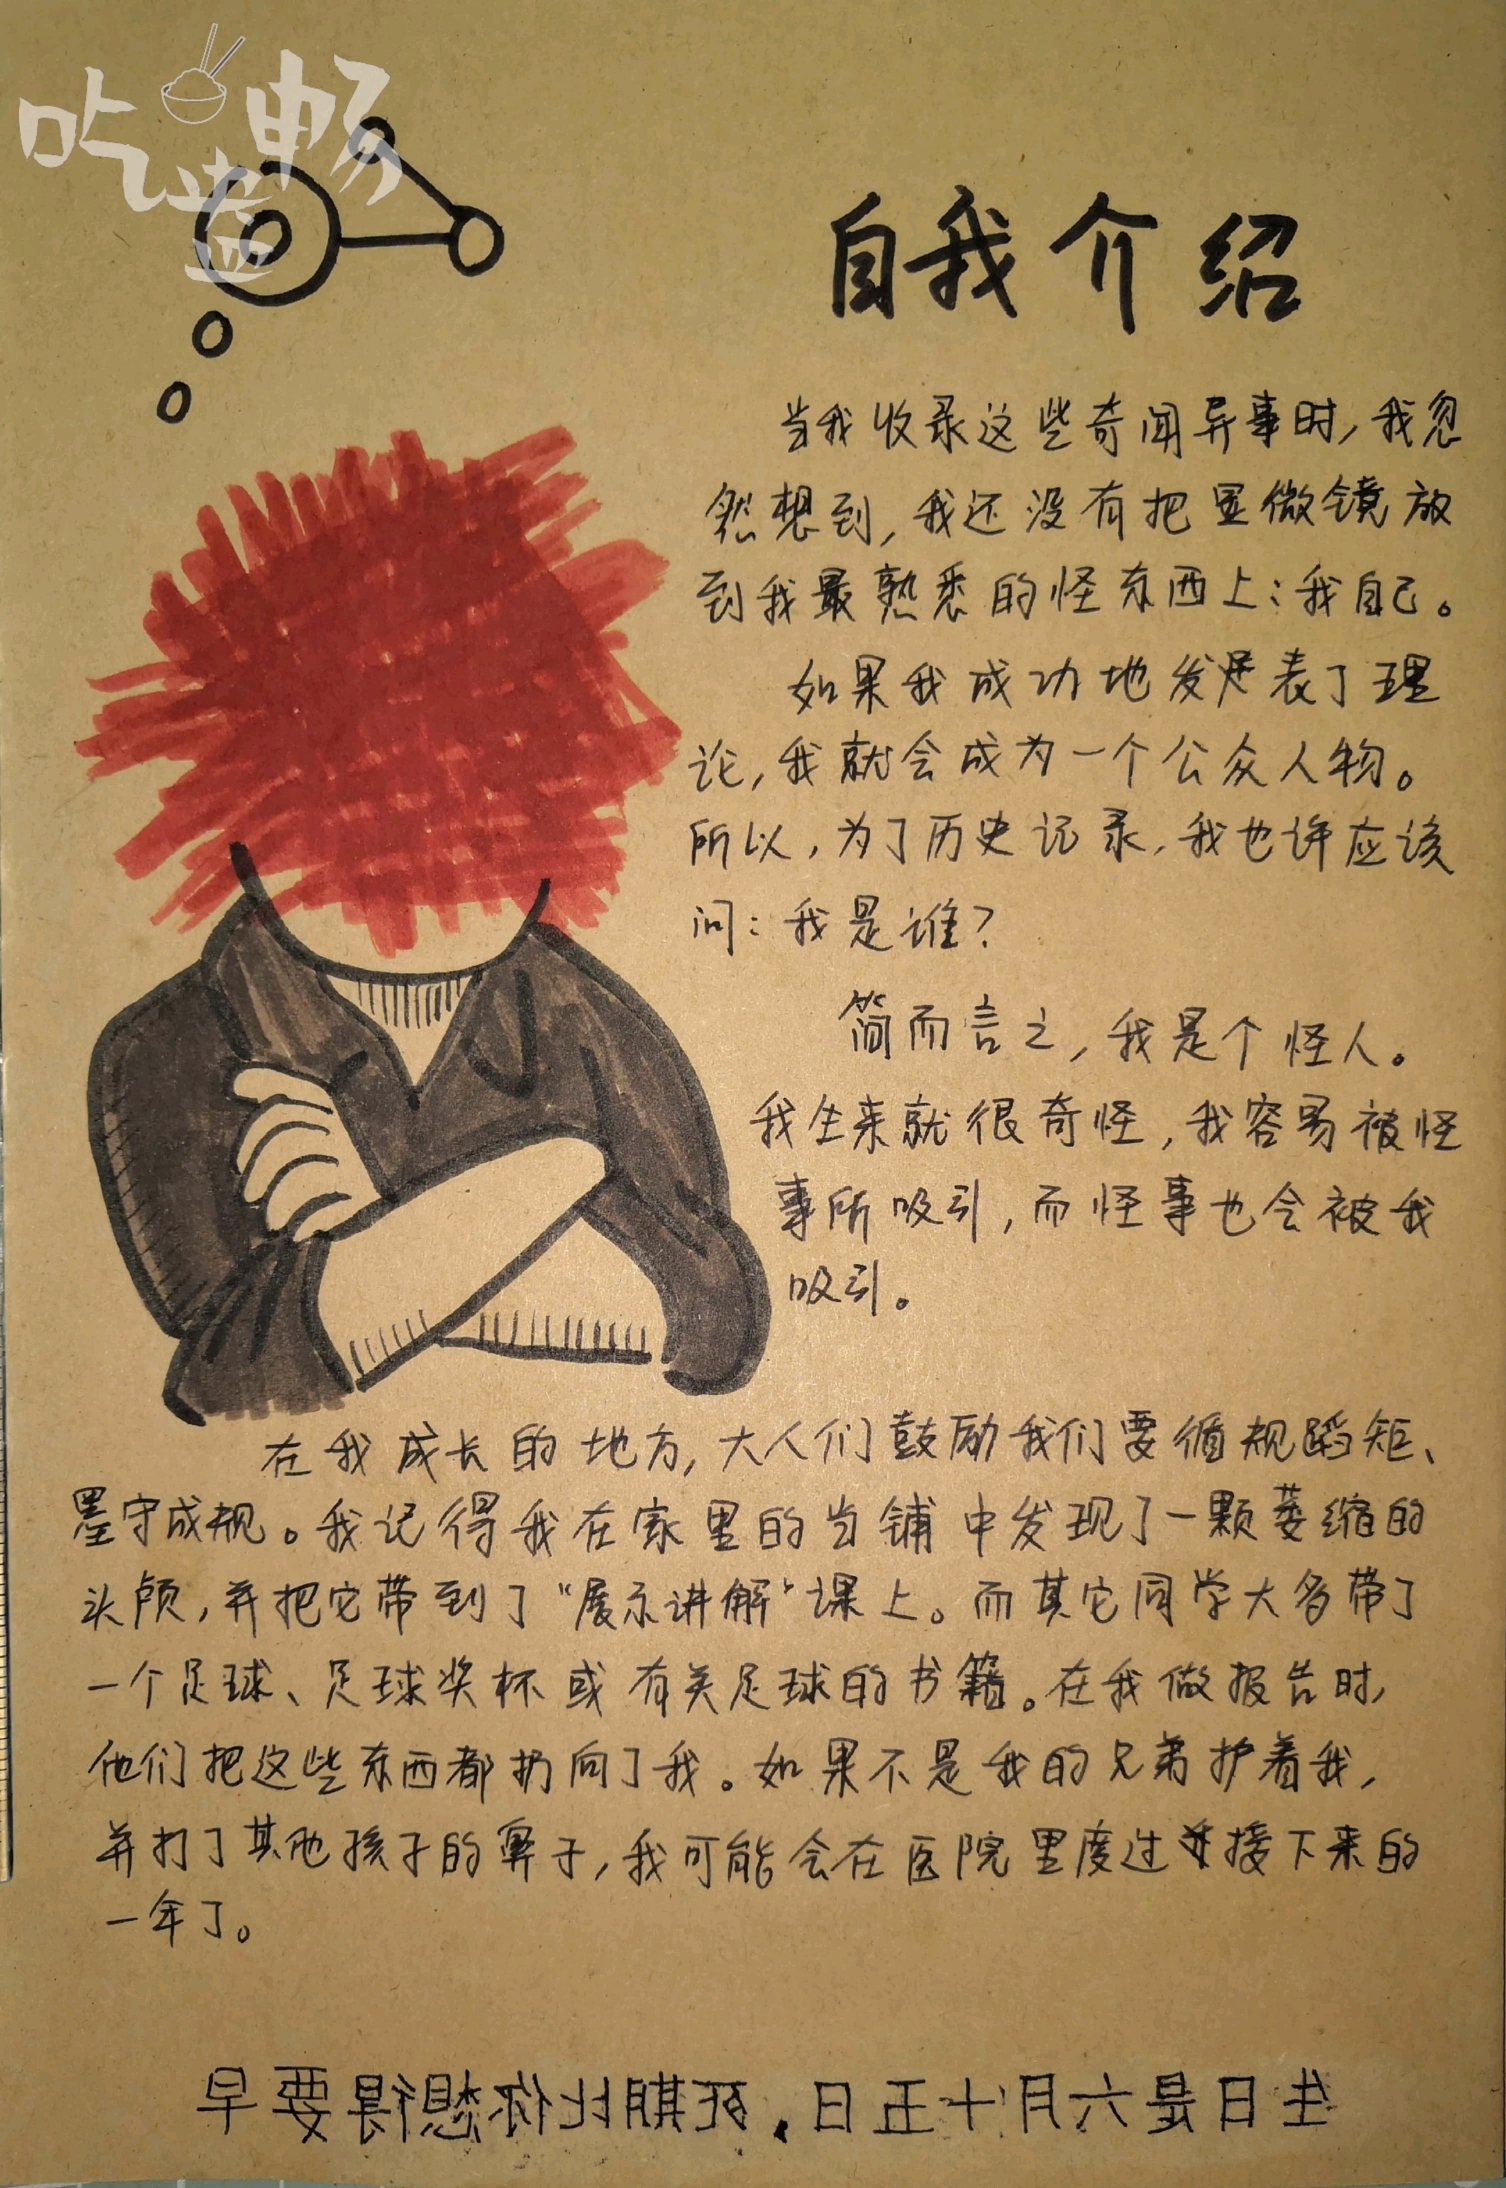 吃喾畅
自我介绍
当我收录这些奇闻异事时,我忽
然想到,我还没有把显微镜放
到我最熟悉的怪东西上:我自己。
如果我成功地发表了理
论,我就会成为一个公众人物。
所以,为了历史记录,我也许应该
问:我是谁?
简而言之,我是个怪人。
我生来就很奇怪,我容易被怪
事所吸引,而怪事也会被我
吸引。
在我成长的地方,大人们鼓励我们要循规蹈矩、
墨守成规。我记得我在家里的当铺中发现了一颗萎缩的
头颅,并把它带到了“展示讲解”课上。而其它同学大多带了
一个足球、足球奖杯或有关足球的书籍。在我做报告时,
他们把这些东西都扔向了我。如果不是我的兄弟护着我,
并打了其他孩子的鼻子,我可能会在医院里度过接下来的
一年了。
生日是六月十五日,死期比你想得要早